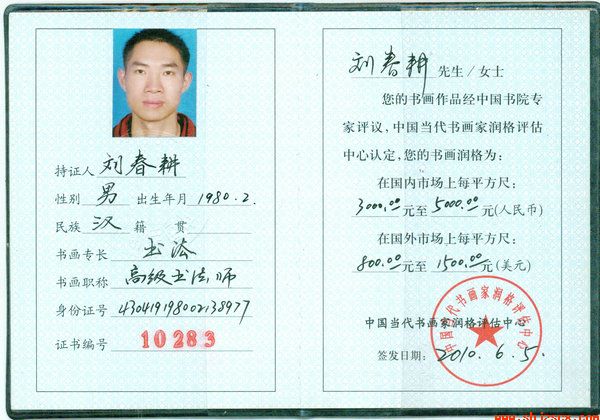 持证人 刘春耕
性别 男 出生年月 1980.2.
民族 汉 籍贯
书画专长 书法
书画职称 高级书法师
身份证号
证书编号 10283
刘春耕 先生/女士
您的书画作品经中国书院专
家评议,中国当代书画家润格评估
中心认定,您的书画润格为:
在国内市场上每平方尺:
3000.00元至5000.00元(人民币)
在国外市场上每平方尺:
800.00元至1500.00元(美元)
中国当代书画家润格评估中心
中国当代书画家润格评估中心
签发日期: 2010.6.5.